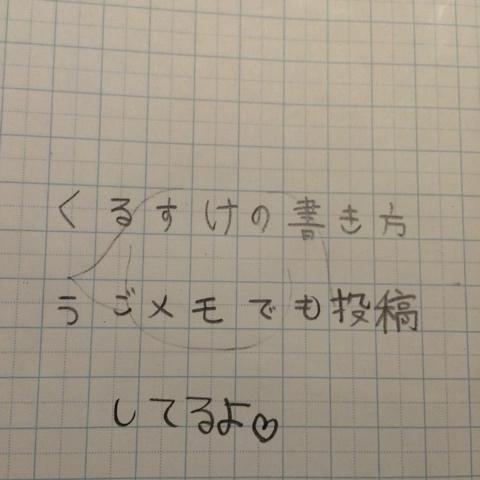 くるすけの書き方
うごメモでも投稿
してるよ♡